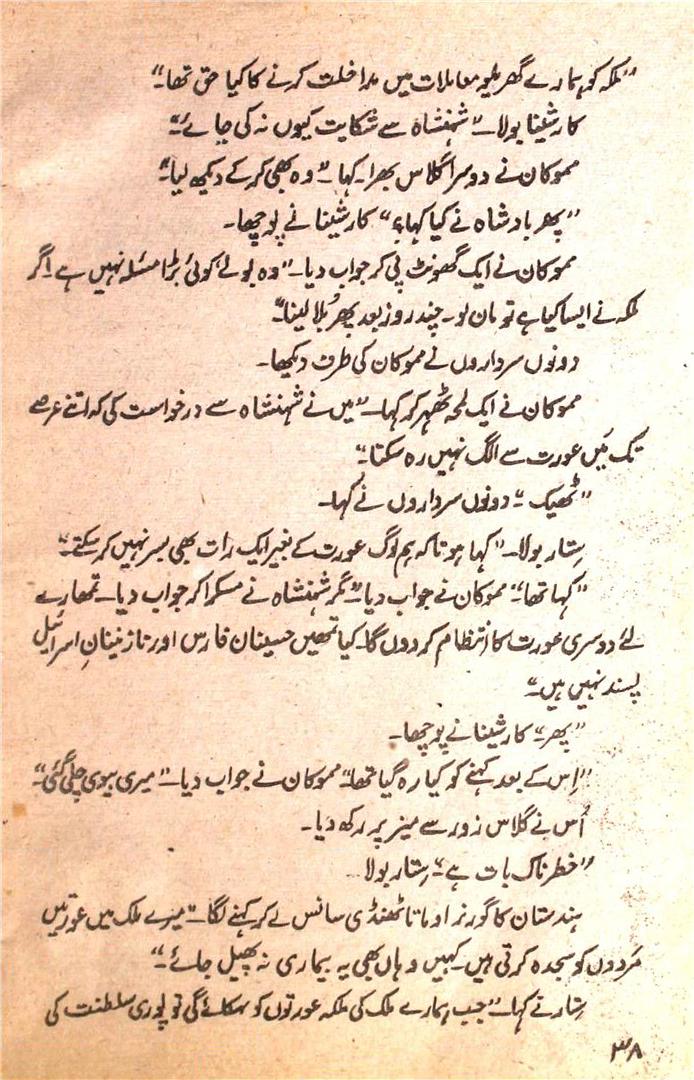 ”ملکہ کو ہمارے گھریلو معاملات میں مداخلت کرنے کا کیا حق تھا۔“
کارشینا بولا۔ ”شہنشاہ سے شکایت کیوں نہ کی جائے“
مموکان نے دوسرا گلاس بھرا۔ کہا۔ ”وہ بھی کر کے دیکھ لیا۔“
”پھر بادشاہ نے کیا کہا؟“ کارشینا نے پوچھا۔
مموکان نے ایک گھونٹ پی کر جواب دیا۔ ”وہ بولے کوئی بڑا مسئلہ نہیں ہے۔ اگر
ملکہ نے ایسا کیا ہے تو مان لو۔ چند روز بعد پھر بُلا لینا۔“
دونوں سرداروں نے مموکان کی طرف دیکھا۔
مموکان نے ایک لمحہ ٹھہر کر کہا۔ ”میں نے شہنشاہ سے درخواست کی کہ اتنے عرصے
تک میں عورت سے الگ نہیں رہ سکتا۔“
”ٹھیک“ دونوں سرداروں نے کہا۔
ستار بولا۔ ”کہا ہوتا کہ ہم لوگ عورت کے بغیر ایک رات بھی بسر نہیں کر سکتے۔“
”کہا تھا“ مموکان نے جواب دیا۔ ”مگر شہنشاہ نے مسکرا کر جواب دیا۔ تمھارے
لئے دوسری عورت کا انتظام کر دوں گا۔ کیا تمھیں حسینان فارس اور نازنینانِ اسرائیل
پسند نہیں ہیں۔“
”پھر“ کارشینا نے پوچھا۔
”اِس کے بعد کہنے کو کیا رہ گیا تھا“ مموکان نے جواب دیا۔ ”میری بیوی چلی گئی“
اُس نے گلاس زور سے میز پر رکھ دیا۔
”خطرناک بات ہے“ ستار بولا
ہندستان کا گورنر اوماتا ٹھنڈی سانس لے کر کہنے لگا۔ ”میرے ملک میں عورتیں
مَردوں کو سجدہ کرتی ہیں۔ کہیں وہاں بھی یہ بیماری نہ پھیل جائے۔“
ستار نے کہا۔ ”جب ہمارے ملک کی ملکہ عورتوں کو بہکائے گی تو پوری سلطنت کی
۳۸